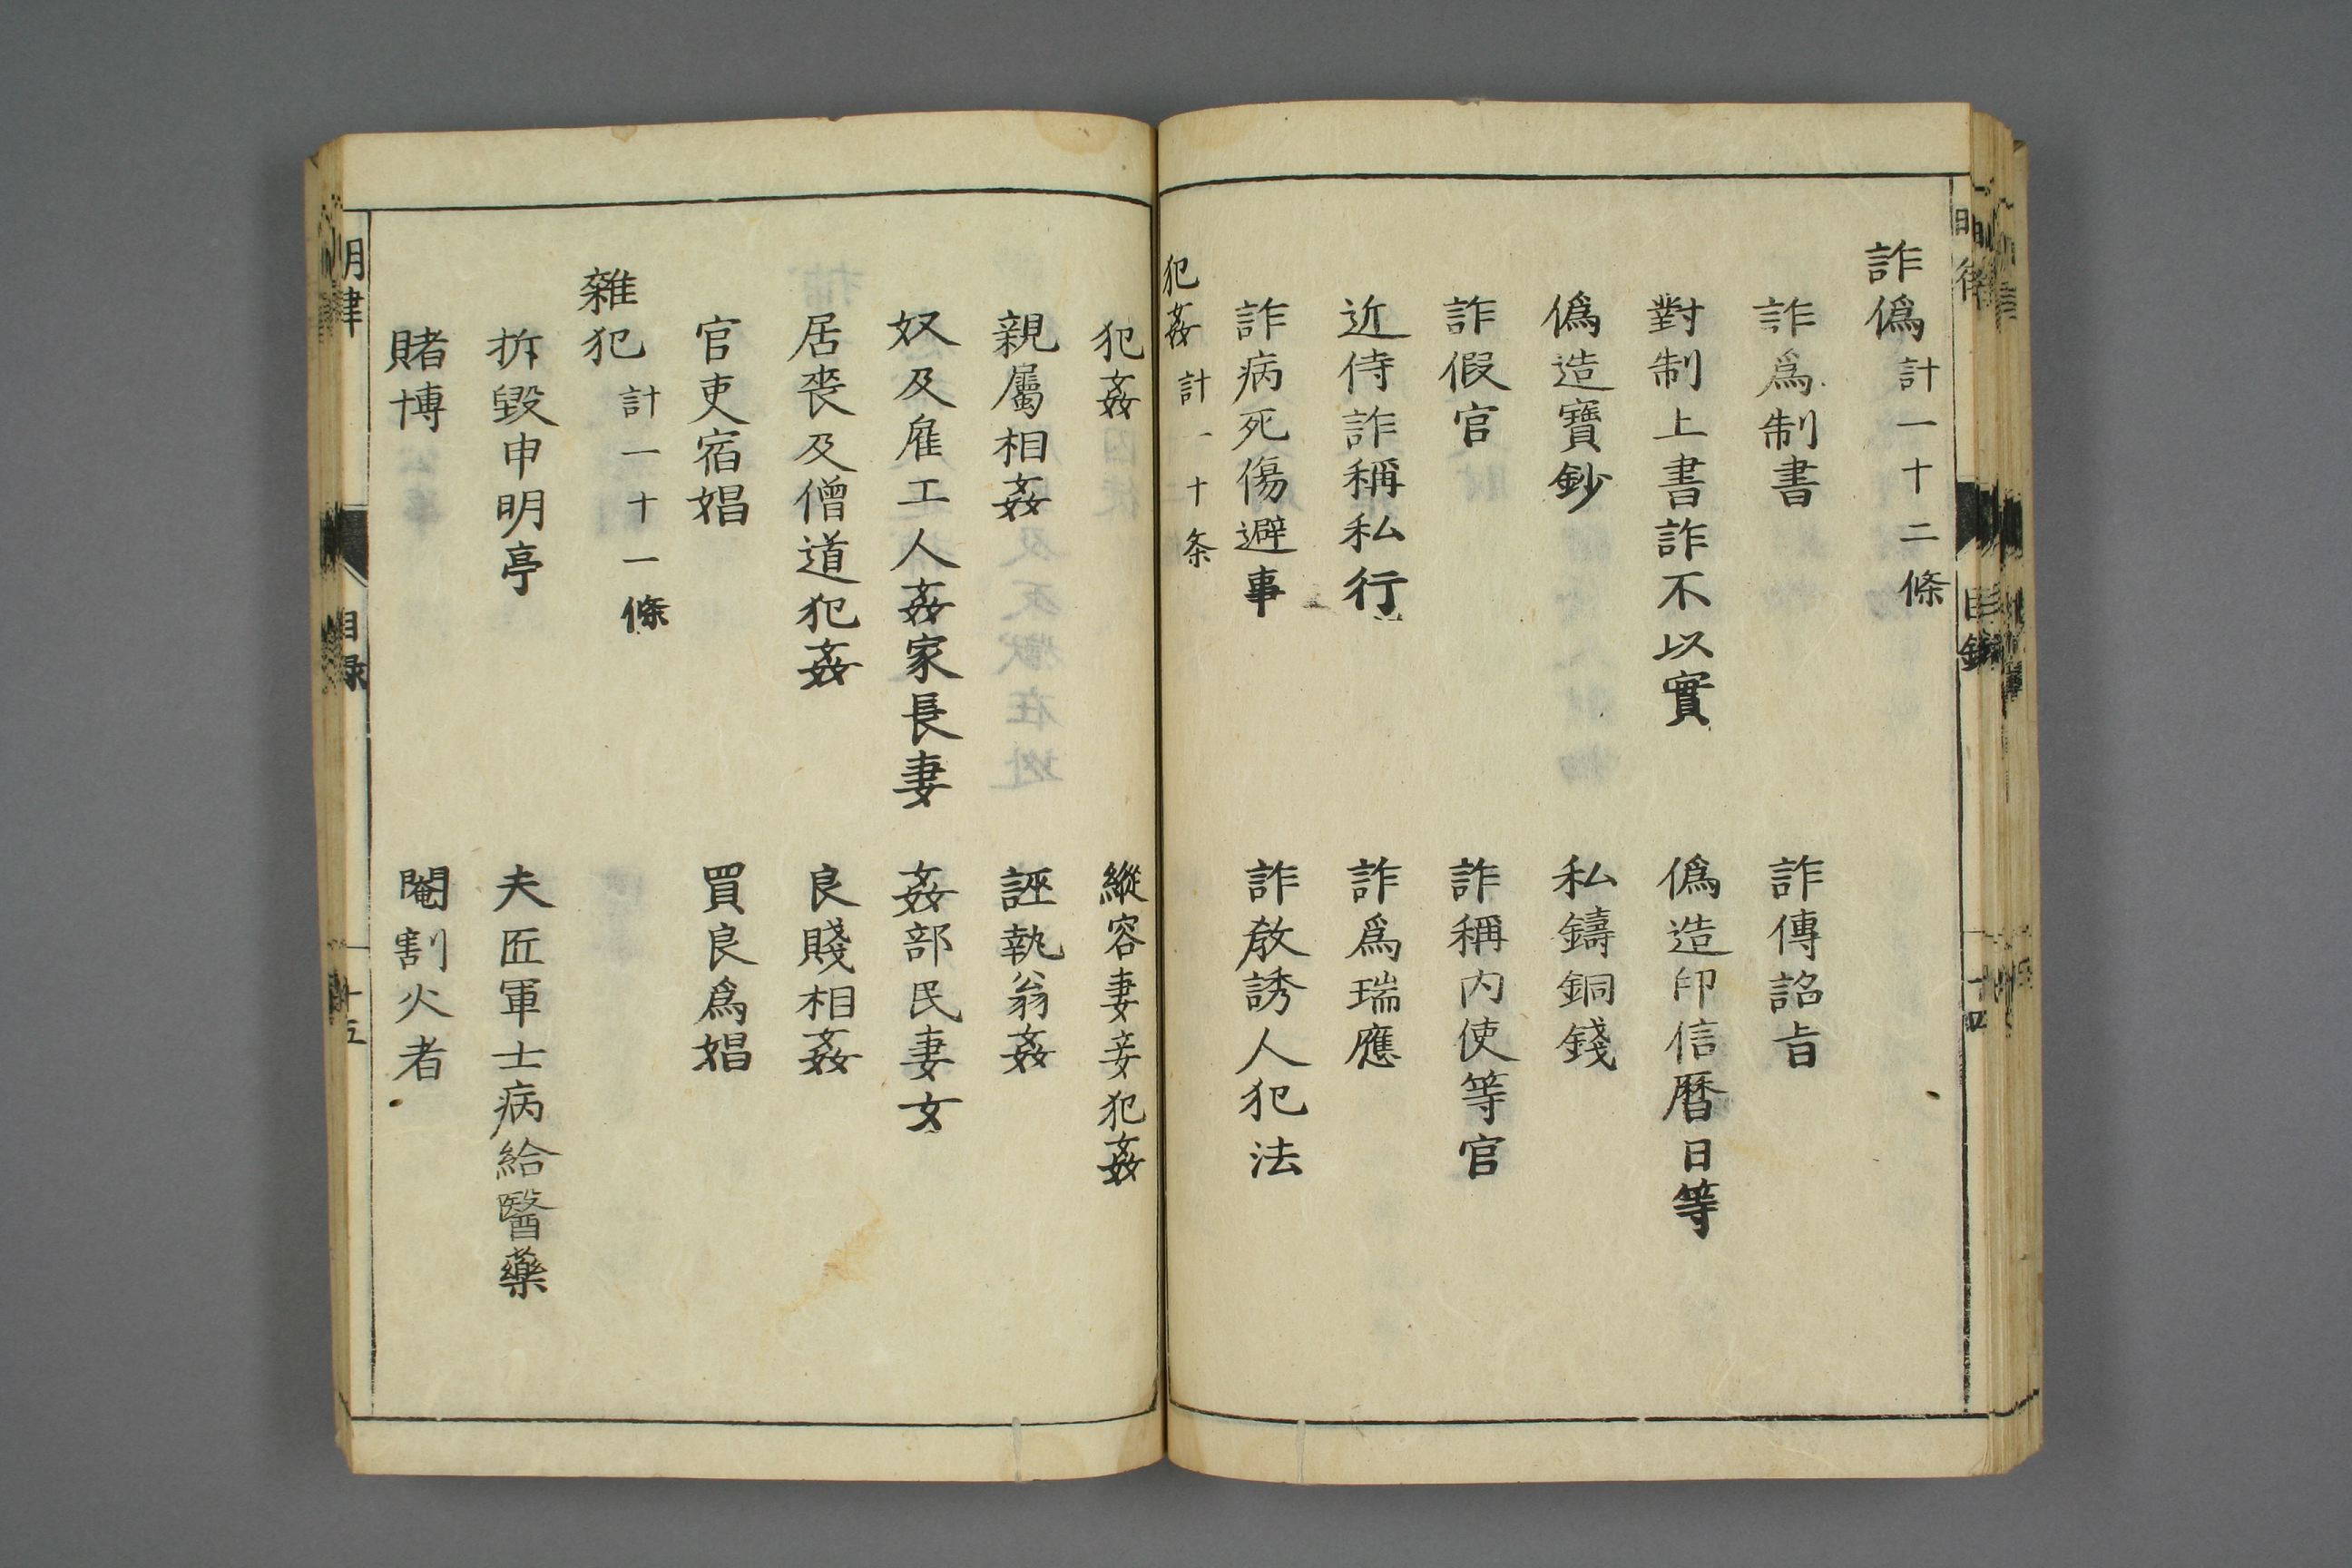 詐偽 計一十二條
詐爲制書 詐傳詔旨
對制上書詐不以實 偽造印信暦日等
偽造寶鈔 私鑄銅錢
詐假官 詐稱内使等官
近侍詐稱私行 詐爲瑞應
詐病死傷避事 詐教誘人犯法
犯姦 計一十条
犯姦 縱容妻妾犯姦
親屬相姦 誣執翁姦
奴及雇工人姦家長妻 姦部民妻女
居喪及僧道犯姦 良賤相姦
官吏宿娼 買良爲娼
雜犯 計一十一條
拆毀申明亭 夫匠軍士病給醫藥
賭博 閹割火者
明律 目録 十五